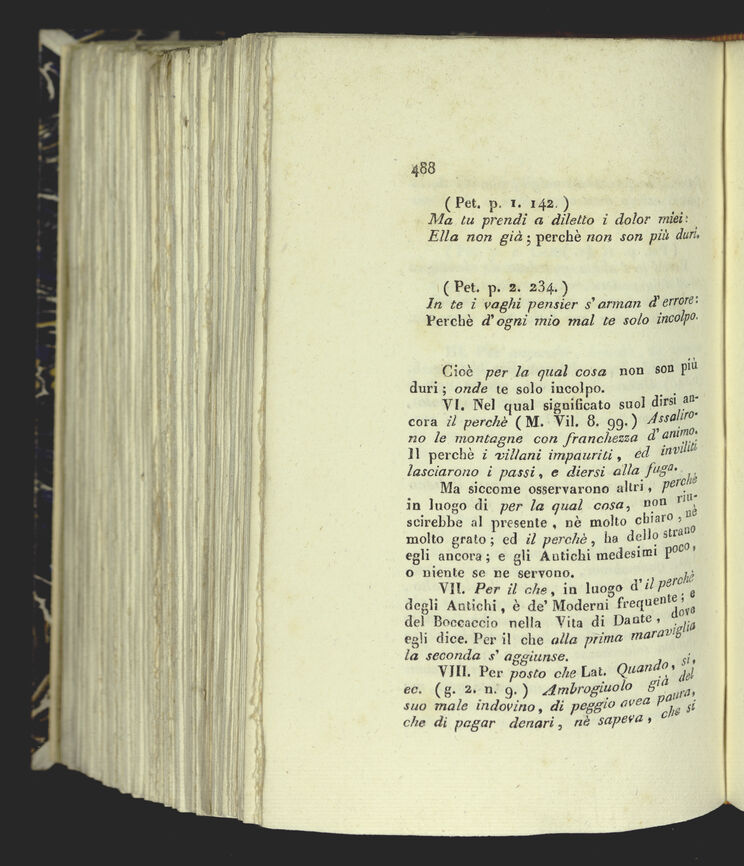 488
( Pet. p. 1. 142. )
Ma tu prendi a diletto i dolor miei:
Ella non già ; perchè non son più duri.
( Pet. p. 2. 234. )
In te i vaghi pensier s' arman d' errore:
Perchè d' ogni mio mal te solo incolpo.
Cioè per la qual cosa non son più
duri ; onde te solo incolpo.
VI. Nel qual significato suol dirsi an-
cora il perchè ( M. Vil. 8. 99. ) Assaliro-
no le montagne con franchezza d' animo.
Il perchè i villani impauriti , ed inviliti
lasciarono i passi , e diersi alla fuga.
Ma siccome osservarono altri , perchè
in luogo di per la qual cosa, non riu-
scirebbe al presente , nè molto chiaro , nè
molto grato ; ed il perchè , ha dello strano
egli ancora ; e gli Antichi medesimi poco ,
o niente se ne servono.
VII. Per il che , in luogo d' il perchè
degli Antichi , è de' Moderni frequente ; e
del Boccaccio nella Vita di Dante , dove
egli dice. Per il che alla prima maraviglia
la seconda s' aggiunse.
VIII. Per posto che Lat. Quando , si ,
ec. ( g. 2. n. 9. ) Ambrogiuolo già del
suo male indovino , di peggio avea paura,
che di pagar denari , nè sapeva , che si